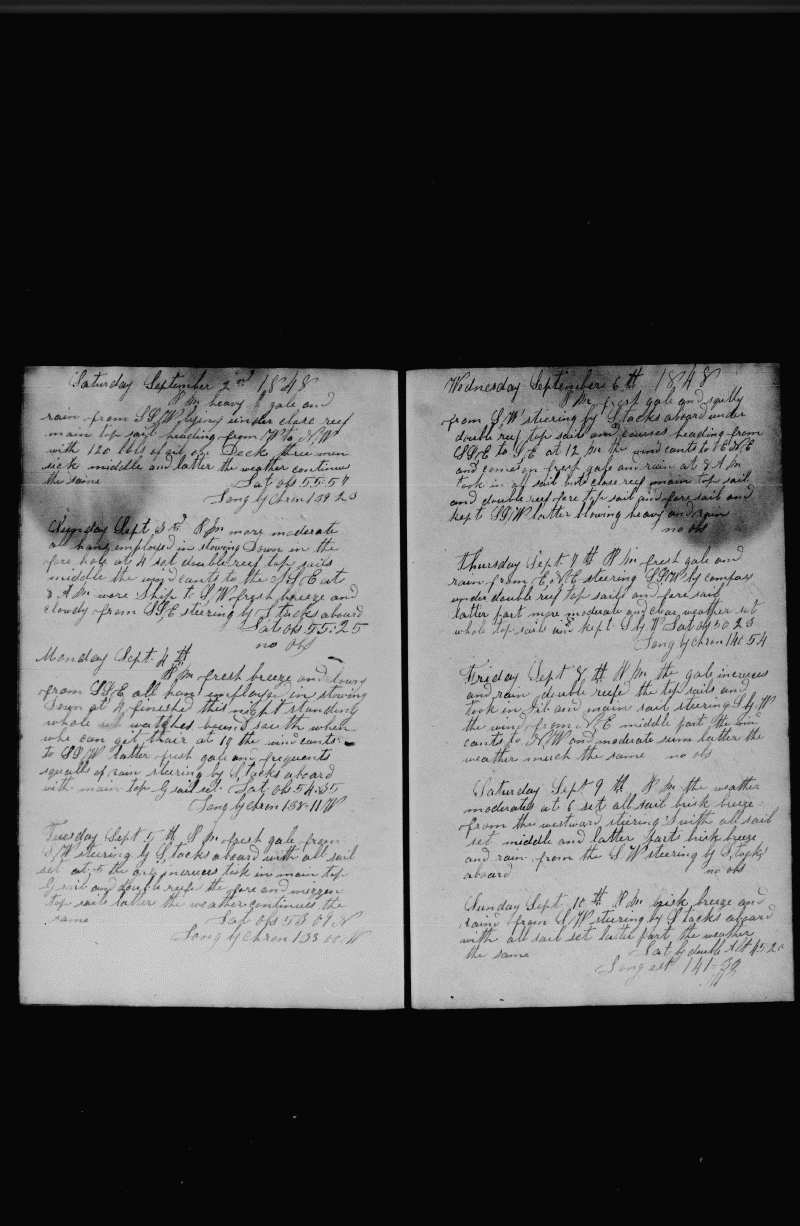 Saturday September 2nd 1848
P M heavy gale and
rain from SSW lying under close reef
main top sail heading from W to NW
with 120 bbls of oil on Deck three men
sick middle and latter the weather continues
the same Lat obs 55:57
Long by Chron 139 23
Sunday Sept 3d P M more moderate
all hang employed in stowing Down in the
fore hole at 4 set double reef top sails
middle the wind cants to the SSE at
8 A M wore Ship to SW fresh breeze and
cloudy from SSE steering by S tacks aboard
Lat obs 55:25
no obs
Monday Sept 4th
P M fresh breeze and clowdy
from SSE all hand imployed in stowing
Down at 4 finished this night standing
whole watches bound south when
whe can git thair at 10 the wind cants
to SSW latter fresh gale and frequents
squalls of rain stering by S tacks aboard
with main top G sail set Lat obs 54:35
Long by Chron 138-11 W
Tuesday Sept 5th P M fresh gale from
SW steering by S tacks aboard with all sail
set at 5 the gale increces took in main top
G sail and double reefs the fore and mizzen
top sails latter the weather continues the
same Lat obs 53 09 N
Long by Chron 138 00 W
Wednesday September 6th 1848
P M fresh gale and sqully
from SW steering by S tacks aboard under
double reef top sails and courses heading from
SSE to SE at 12 P M the wind cants to ENE
and comes on fresh gale and rain at 8 A M
took in all sail but close reef main top sail
and double reef fore top sail and fore sail and
kept SSW latter blowing heavy and rain
no obs
Thursday Sept 7th P M fresh gale and
rain from ENE steering SSW by compass
under double reef top sails and fore sail
latter part more moderate and clear weather set
whole top sails and kept S by W Lat obs 50 23
Long by Chron 140 54
Friday Sept 8th P M the gale increces
and rain double reefs the top sails and
took in Jib and main sail steering S by W
the wind from NE middle part the wind
cants to NW and moderate sum latter the
weather much the same no obs
Saturday Sept 9th P M the weather
moderates at 6 set all sail brisk breze
from the westward steering S with all sail
set middle and latter parts brisk breeze
and rain from the SW steering by S tacks
aboard no obs
Sunday Sept 10th P M brisk breeze and
raind from SW steering by S tacks aboard
with all sail set latter part the weather
the same Lat by double Alt 45 20
Long est 141-30
W